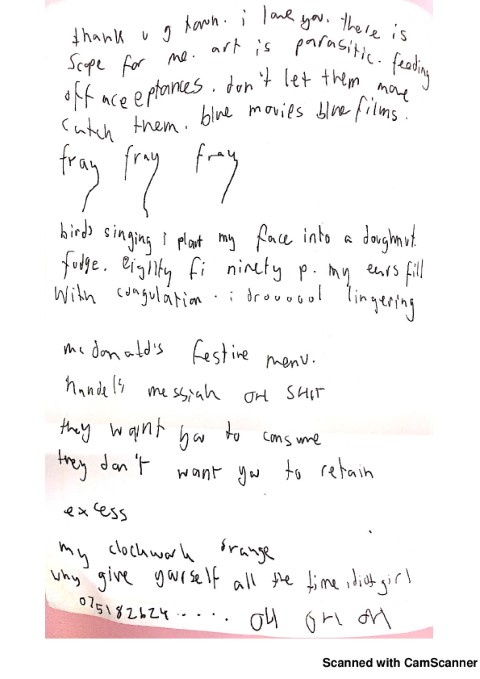 thank u g town. i love you. there is
scope for me. art is parasitic. feeding
off acceptances. don't let them move
catch them. blue movies blue films.
fray fray fray
birds singing i plant my face into a doughnut.
fudge. eighty fi ninety p. my ears fill
with coagulation. i drooooool lingering
mcdonald's festive menu.
handel's messiah OH SHIT
they want you to consume
they don't want you to retain
excess
my clockwork orange
why give yourself all the time idiot girl
075182624..... OH OH OH
Scanned with CamScanner